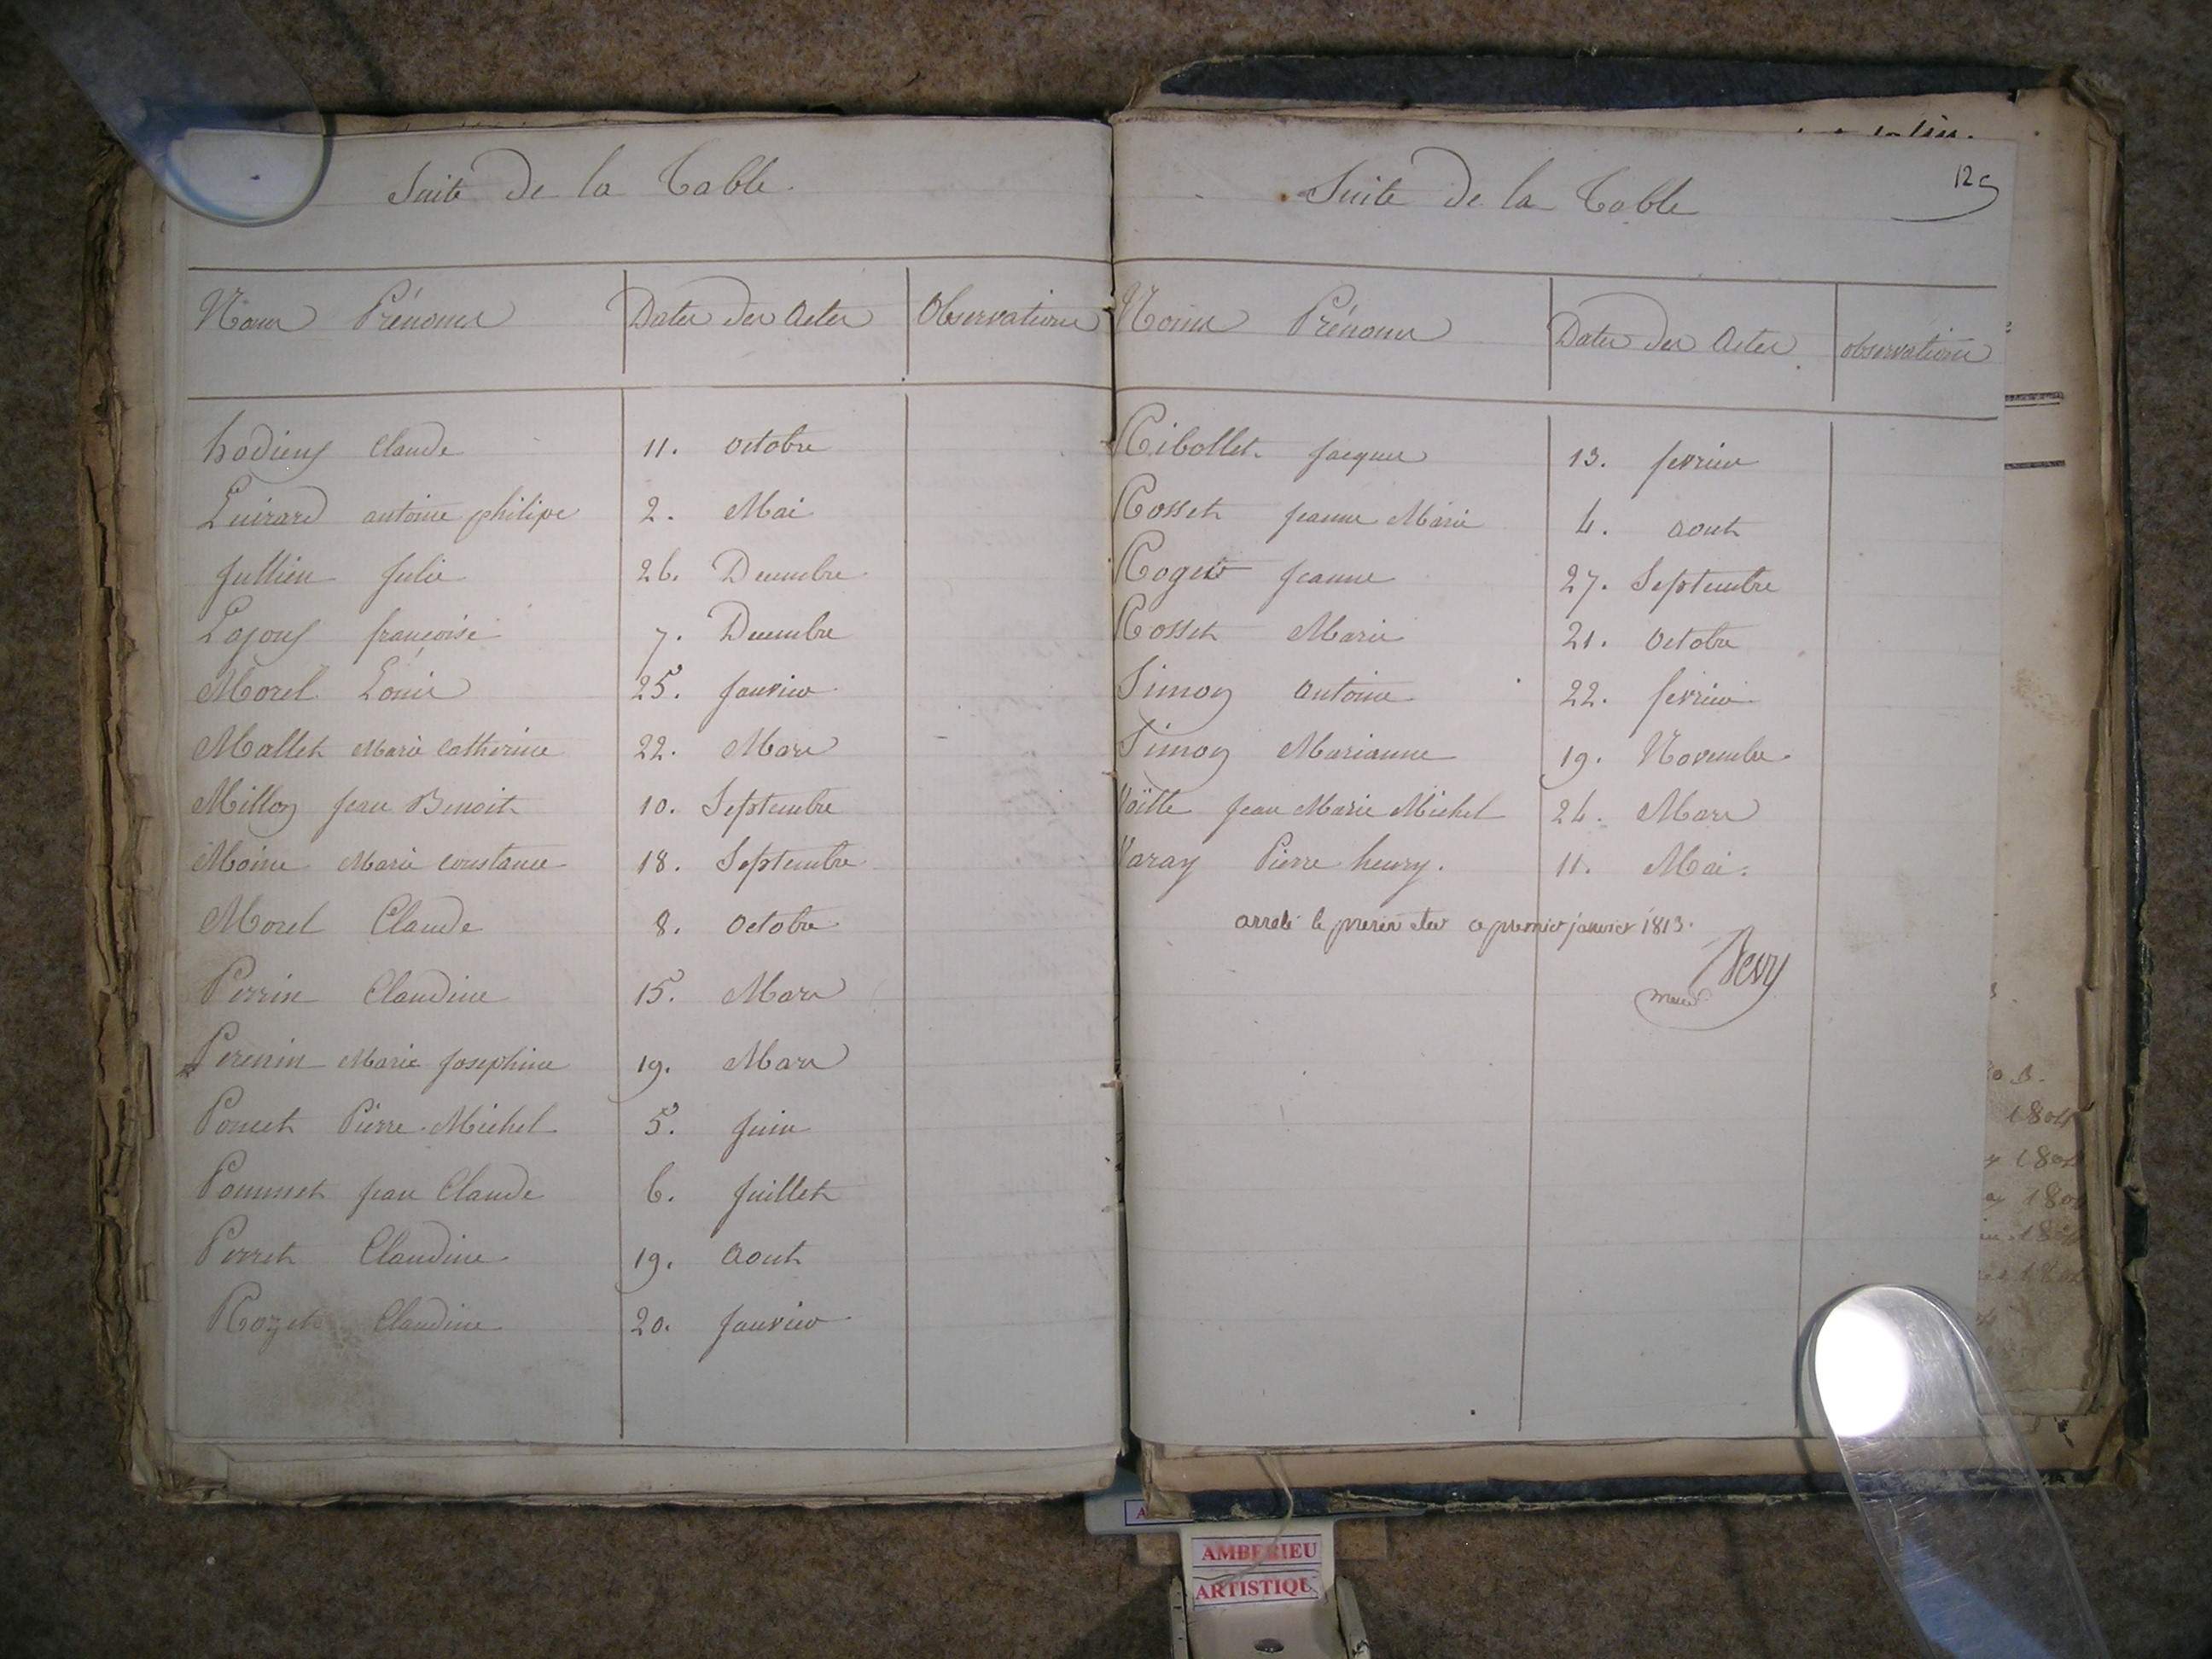 Suite de la Table.
Noms Prénoms Dates des Actes Observations
hodieux Claude 11. octobre
Luirard antoine philipe 2. Mai
Jullien Julie 26. Decembre
Lajoux françoise 7. Decembre
Morel Louis 25. Janvier
Mallet Marie Catherine 22. Mars
Millon Jean Benoit 10. Septembre
Moine Marie Constance 18. Septembre
Morel Claude 8. octobre
Perrin Claudine 15. Mars
Perenin Marie Josephine 19. Mars
Poncet Pierre Michel 5. Juin
Pommet Jean Claude 6. Juillet
Perret Claudine 19. Aout
Rozet Claudine 20. Janvier
Suite de la Table
Noms Prénoms Dates des Actes observations
Ribollet Jacques 13. fevrier
Rosset Jeanne Marie 4. aout
Roget Jeanne 27. Septembre
Rosset Marie 21. octobre
Simon Antoine 22. fevrier
Simon Marianne 19. Novembre
Voille Jean Marie Michel 24. Mars
Varay Pierre henry. 11. Mai.
arreté le ce premier janvier 1813.
maire
AMBERIEU
ARTISTIQUE